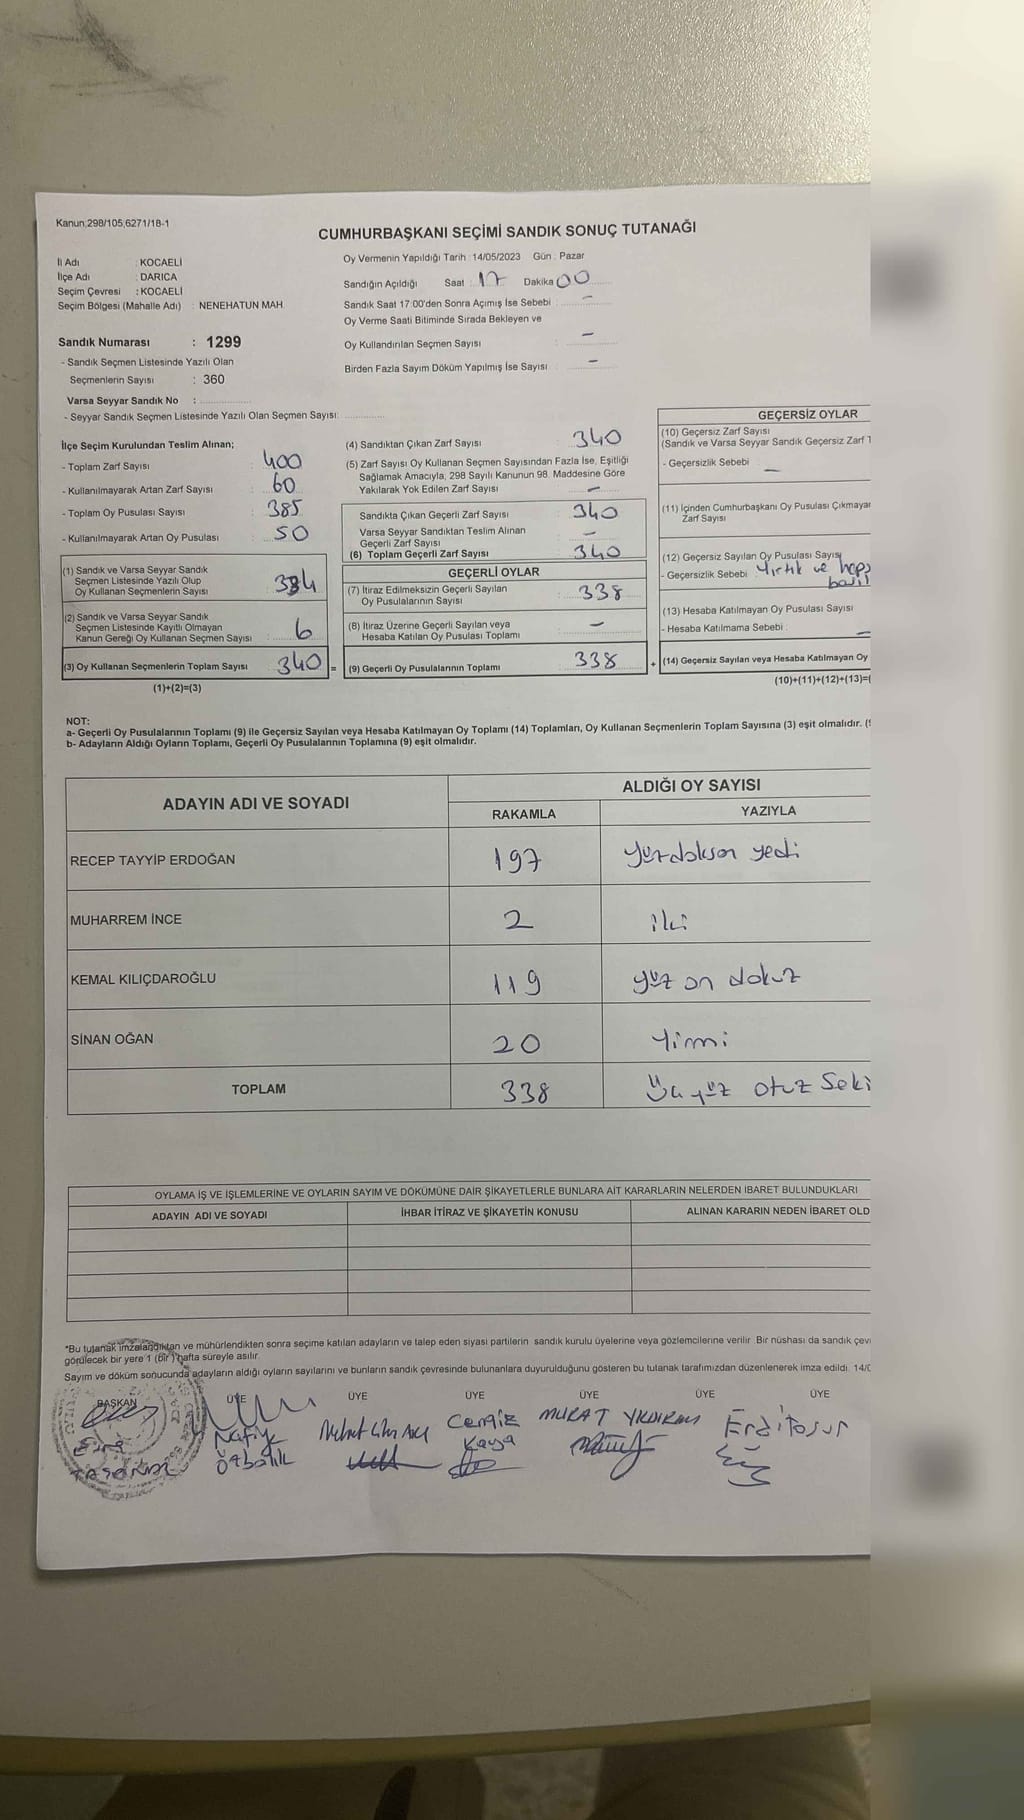 Kanun;298/105,6271/18-1
CUMHURBAŞKANI SEÇİMİ SANDIK SONUÇ TUTANAĞI
İl Adı : KOCAELİ
İlçe Adı : DARICA
Seçim Çevresi : KOCAELİ
Seçim Bölgesi (Mahalle Adı) : NENEHATUN MAH.
Oy Vermenin Yapıldığı Tarih : 14/05/2023 Gün : Pazar
Sandığın Açıldığı Saat : 17 Dakika 00
Sandık Saat 17:00'den Sonra Açımış İse Sebebi : –
Oy Verme Saati Bitiminde Sırada Bekleyen ve
Oy Kullandırılan Seçmen Sayısı : –
Birden Fazla Sayım Döküm Yapılmış İse Sayısı –
Sandık Numarası : 1299
- Sandık Seçmen Listesinde Yazılı Olan
Seçmenlerin Sayısı : 360
Varsa Seyyar Sandık No :
- Seyyar Sandık Seçmen Listesinde Yazılı Olan Seçmen Sayısı:
İlçe Seçim Kurulundan Teslim Alınan;
- Toplam Zarf Sayısı : 400
- Kullanılmayarak Artan Zarf Sayısı : 60
- Toplam Oy Pusulası Sayısı : 385
- Kullanılmayarak Artan Oy Pusulası : 50
(1) Sandık ve Varsa Seyyar Sandık
Seçmen Listesinde Yazılı Olup
Oy Kullanan Seçmenlerin Sayısı 334
(2) Sandık ve Varsa Seyyar Sandık
Seçmen Listesinde Kayıtlı Olmayan
Kanun Gereği Oy Kullanan Seçmen Sayısı 6
(3) Oy Kullanan Seçmenlerin Toplam Sayısı 340 =
(1)+(2)=(3)
(4) Sandıktan Çıkan Zarf Sayısı : 340
(5) Zarf Sayısı Oy Kullanan Seçmen Sayısından Fazla İse, Eşitliği
Sağlamak Amacıyla; 298 Sayılı Kanunun 98. Maddesine Göre
Yakılarak Yok Edilen Zarf Sayısı : –
Sandıkta Çıkan Geçerli Zarf Sayısı : 340
Varsa Seyyar Sandıktan Teslim Alınan
Geçerli Zarf Sayısı –
(6) Toplam Geçerli Zarf Sayısı 340
GEÇERLİ OYLAR
(7) İtiraz Edilmeksizin Geçerli Sayılan
Oy Pusulalarının Sayısı : 338
(8) İtiraz Üzerine Geçerli Sayılan veya
Hesaba Katılan Oy Pusulası Toplamı –
(9) Geçerli Oy Pusulalarının Toplamı 338 +
GEÇERSİZ OYLAR
(10) Geçersiz Zarf Sayısı
(Sandık ve Varsa Seyyar Sandık Geçersiz Zarf T
- Geçersizlik Sebebi –
(11) İçinden Cumhurbaşkanı Oy Pusulası Çıkmayan
Zarf Sayısı
(12) Geçersiz Sayılan Oy Pusulası Sayısı
- Geçersizlik Sebebi Yırtık ve
(13) Hesaba Katılmayan Oy Pusulası Sayısı
- Hesaba Katılmama Sebebi : –
(14) Geçersiz Sayılan veya Hesaba Katılmayan Oy
(10)+(11)+(12)+(13)=(
NOT:
a- Geçerli Oy Pusulalarının Toplamı (9) ile Geçersiz Sayılan veya Hesaba Katılmayan Oy Toplamı (14) Toplamları, Oy Kullanan Seçmenlerin Toplam Sayısına (3) eşit olmalıdır. (
b- Adayların Aldığı Oyların Toplamı, Geçerli Oy Pusulalarının Toplamına (9) eşit olmalıdır.
ADAYIN ADI VE SOYADI ALDIĞI OY SAYISI
RAKAMLA YAZIYLA
RECEP TAYYİP ERDOĞAN 197 yüzdoksan yedi
MUHARREM İNCE 2 iki
KEMAL KILIÇDAROĞLU 119 yüz on dokuz
SİNAN OĞAN 20 Yirmi
TOPLAM 338 Üçyüz otuz Seki
OYLAMA İŞ VE İŞLEMLERİNE VE OYLARIN SAYIM VE DÖKÜMÜNE DAİR ŞİKAYETLERLE BUNLARA AİT KARARLARIN NELERDEN İBARET BULUNDUKLARI
ADAYIN ADI VE SOYADI İHBAR İTİRAZ VE ŞİKAYETİN KONUSU ALINAN KARARIN NEDEN İBARET OLD
*Bu tutanak imzalandıktan ve mühürlendikten sonra seçime katılan adayların ve talep eden siyasi partilerin sandık kurulu üyelerine veya gözlemcilerine verilir. Bir nüshası da sandık çevr
görülecek bir yere 1 (bir) hafta süreyle asılır.
Sayım ve döküm sonucunda adayların aldığı oyların sayılarını ve bunların sandık çevresinde bulunanlara duyurulduğunu gösteren bu tutanak tarafımızdan düzenlenerek imza edildi. 14/0
BAŞKAN ÜYE ÜYE ÜYE ÜYE ÜYE ÜYE
Cengiz Kaya
MURAT YILDIRIM